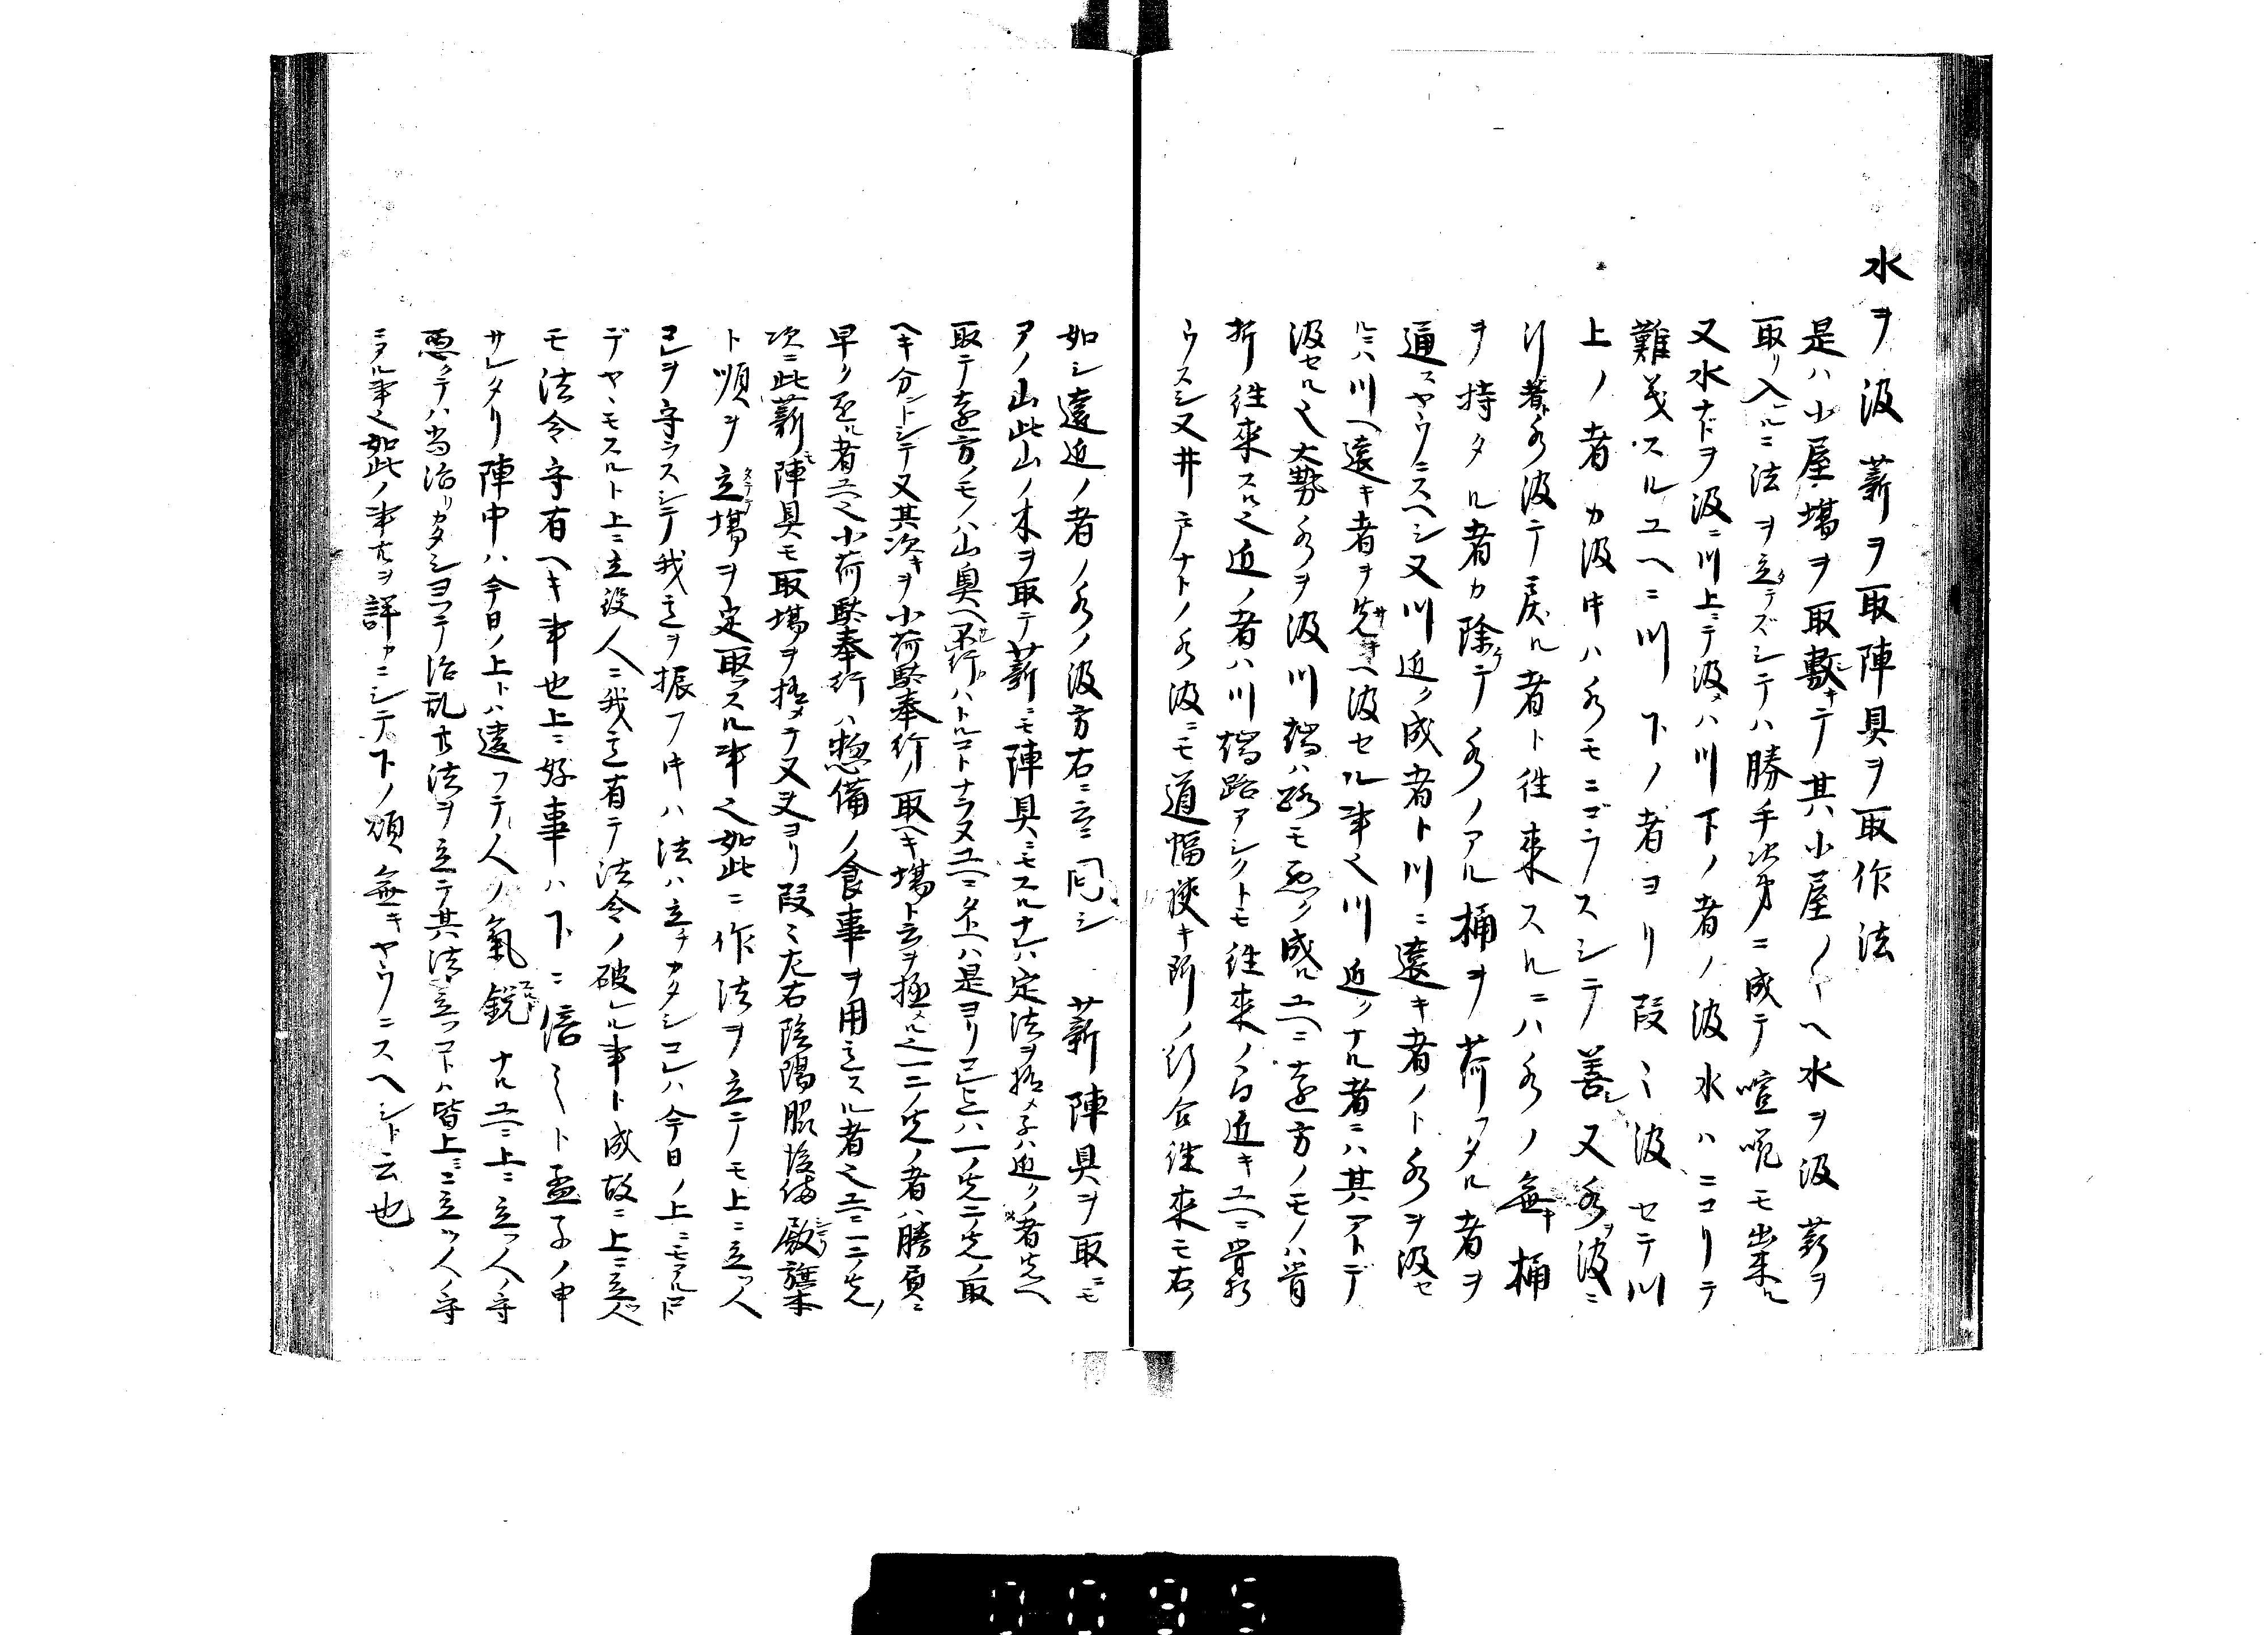 水ヲ汲薪ヲ取陣具ヲ取作法
是ハ小屋場ヲ取敷キテ其小屋ノヤヘ水ヲ汲薪ヲ
取リ入ルニ法ヲ立テズシテハ勝手次第ニ成テ喧𠵅モ出来ル
又水ナドヲ汲ニ川上ニテ汲メハ川下ノ者ノ汲水ハニコリテ
難義スルユヘニ川下ノ者ヨリ段〻汲セテ川
上ノ者カ汲トキハ水モニゴラスシテ善シ又水ヲ汲ニ
行者ト水汲テ戻ル者ト往来スルニハ水ノ無キ桶
ヲ持タル者カ除ケテ水ノアル桶ヲ荷フタル者ヲ
通スヤウニスヘシ又川近ク成者ト川ニ遠キ者ノト水ヲ汲セ
ルニハ川ヘ遠キ者ヲ先キヘ汲セル事也川近クナル者ニハ其アトデ
汲セル也大勢水ヲ汲川端ハ路モ悪ク成ルユヘニ遠方ノモノハ骨
折往来スル也近ノ者ハ川端路アシクトモ往来ノ道近キユヘニ骨折
ウスシ又井戸ナトノ水汲ニモ道幅狭キ所ノ行合往来モ右ノ
如シ遠近ノ者ノ水ノ汲方右ニ云ニ同シ　薪陣具ヲ取ニモ
アノ山此山ノ木ヲ取テ薪ニモ陣具ニモスルナレハ定法ヲ極メ子ハ近クノ者先ヘ
取テ遠方ノモノハ山奥ヘ不行ハトルコトナラヌユヘニタトヘハ是ヨリコレ迄ハ一ノ先二ノ先ノ取
ヘキ分ントシテ又其次キヲ小荷駄奉行ノ取ヘキ場ト云ヲ極メル也一二ノ先ノ者ハ勝負ニ
早ク至ル者ユヘ也小荷駄奉行ハ惣備ノ食事ヲ用意スル者也ユヘニ一二ノ先ノ
次ニ此薪モ陣具モ取場ヲ極メテ又夫ヨリ段〻左右陰陽脇後備殿旗本
ト順ヲ立テテ場ヲ定取ラスル事也如此ニ作法ヲ立テモ上ニ立ツ人
コレヲ守ラスシテ我意ヲ振フトキハ法ハ立チカタシコレハ今日ノ上ニモアルコト
デヤヽモスルト上ニ立役人ニ我意有テ法令ノ破レル事ト成故ニ上ニ立人
モ法令守有ヘキ事也上ニ好事ハ下ニ倍〻ト孟子ノ申
サレタリ陣中ハ今日ノ上トハ違フテ人ノ氣鋭ナルユヘニ上ニ立ツ人ノ守
悪クテハ尚治リカタシヨツテ治乱共法ヲ立テ其法ノ立ツコトハ皆上ニ立ツ人ノ守
ニアル事也如此ノ事共ヲ詳カニシテ下ノ煩無キヤウニスヘシト云也